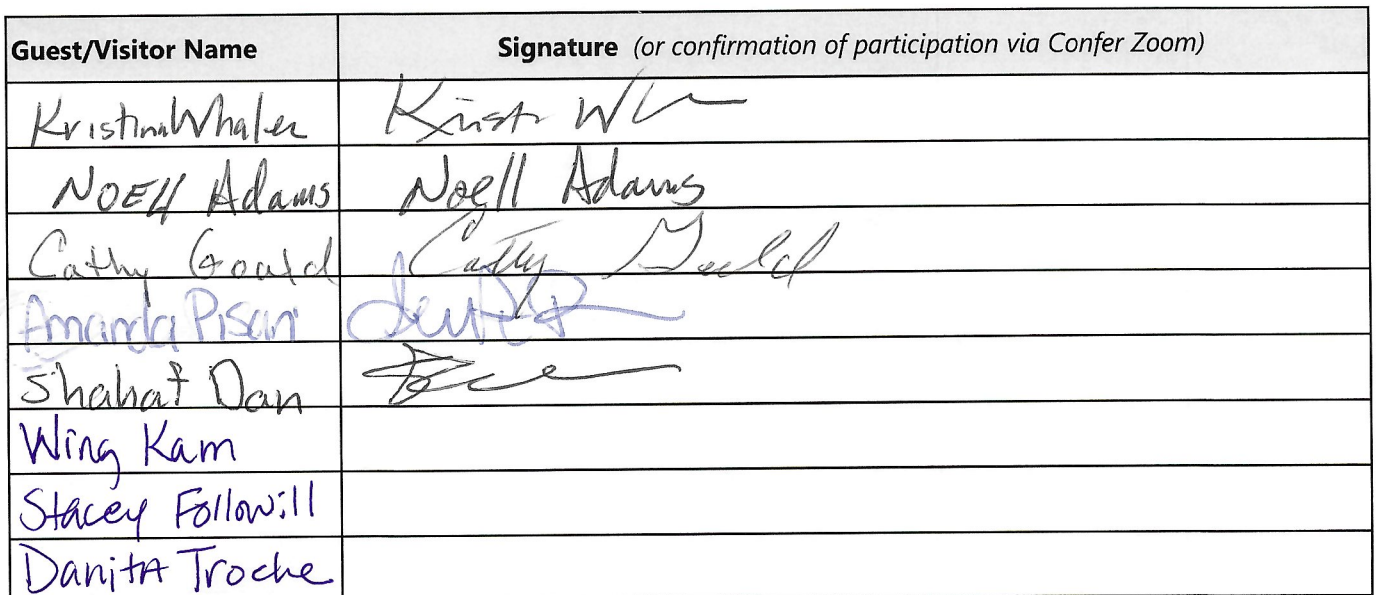 Guest/Visitor Name Signature (or confirmation of participation via Confer Zoom)
Kristina Whalen
NOEll Adams Noell Adams
Cathy Gould Cathy Gould
Amanda Pisani
Shahaf Dan
Wing Kam
Stacey Followill
Danita Troche